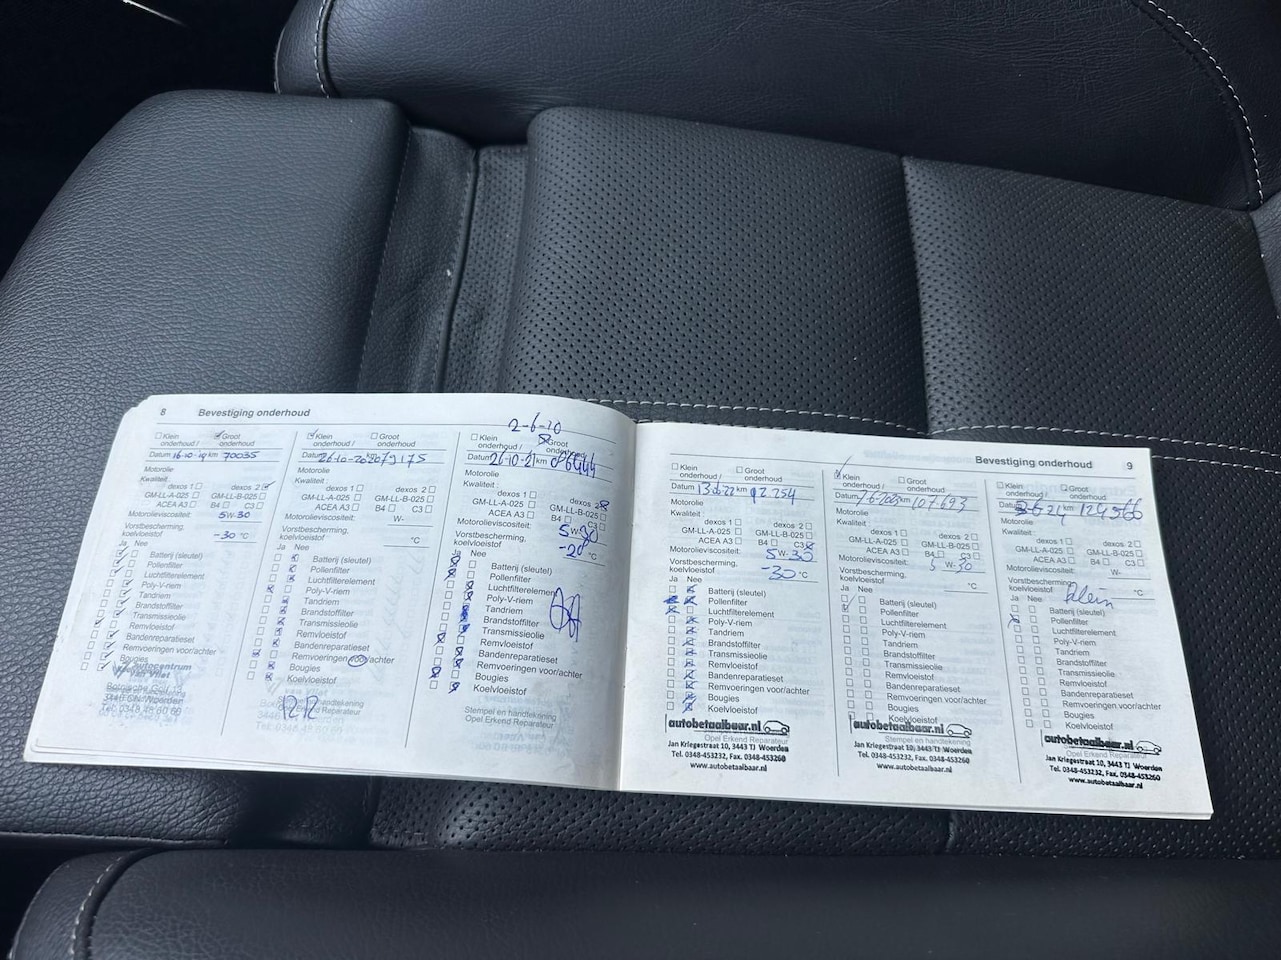 8 Bevestiging onderhoud
☐ Klein onderhoud / ☑ Groot onderhoud
Datum 16-10-19 km 70035
Motorolie
Kwaliteit:
dexos 1 ☐ dexos 2 ☑
GM-LL-A-025 ☐ GM-LL-B-025 ☐
ACEA A3 ☐ B4 ☐ C3 ☐
Motorolieviscositeit: 5W-30
Vorstbescherming, koelvloeistof -30 °C
Ja Nee
Batterij (sleutel)
Pollenfilter
Luchtfilterelement
Poly-V-riem
Tandriem
Brandstoffilter
Transmissieolie
Remvloeistof
Bandenreparatieset
Remvoeringen voor/achter
Bougies
Autocentrum
van Vliet
☑ Klein onderhoud / ☐ Groot onderhoud
Datum 26-10-2020 km 79175
Motorolie
Kwaliteit:
dexos 1 ☐ dexos 2 ☐
GM-LL-A-025 ☐ GM-LL-B-025 ☐
ACEA A3 ☐ B4 ☐ C3 ☐
Motorolieviscositeit: W-
Vorstbescherming, koelvloeistof °C
Ja Nee
Batterij (sleutel)
Pollenfilter
Luchtfilterelement
Poly-V-riem
Tandriem
Brandstoffilter
Transmissieolie
Remvloeistof
Bandenreparatieset
Remvoeringen voor/achter
Bougies
Koelvloeistof
☐ Klein onderhoud / ☒ Groot onderhoud
Datum 26-10-21 km
Motorolie
Kwaliteit:
dexos 1 ☐ dexos 2 ☒
GM-LL-A-025 ☐ GM-LL-B-025 ☐
ACEA A3 ☐ B4 ☐ C3 ☐
Motorolieviscositeit: 5W-30
Vorstbescherming, koelvloeistof -20 °C
Ja Nee
Batterij (sleutel)
Pollenfilter
Luchtfilterelement
Poly-V-riem
Tandriem
Brandstoffilter
Transmissieolie
Remvloeistof
Bandenreparatieset
Remvoeringen voor/achter
Bougies
Koelvloeistof
Stempel en handtekening
Opel Erkend Reparateur
Bevestiging onderhoud 9
☐ Klein onderhoud / ☐ Groot onderhoud
Datum km 92.254
Motorolie
Kwaliteit:
dexos 1 ☐ dexos 2 ☐
GM-LL-A-025 ☐ GM-LL-B-025 ☐
ACEA A3 ☐ B4 ☐ C3 ☒
Motorolieviscositeit: 5W-30
Vorstbescherming, koelvloeistof -30 °C
Ja Nee
Batterij (sleutel)
Pollenfilter
Luchtfilterelement
Poly-V-riem
Tandriem
Brandstoffilter
Transmissieolie
Remvloeistof
Bandenreparatieset
Remvoeringen voor/achter
Bougies
Koelvloeistof
autobetaalbaar.nl
Opel Erkend Reparateur
Jan Kriegestraat 10, 3443 TJ Woerden
Tel. 0348-453232, Fax. 0348-453260
www.autobetaalbaar.nl
☑ Klein onderhoud / ☐ Groot onderhoud
Datum km 107693
Motorolie
Kwaliteit:
dexos 1 ☐ dexos 2 ☐
GM-LL-A-025 ☐ GM-LL-B-025 ☐
ACEA A3 ☐ B4 ☐ C3 ☐
Motorolieviscositeit: 5 W-30
Vorstbescherming, koelvloeistof °C
Ja Nee
Batterij (sleutel)
Pollenfilter
Luchtfilterelement
Poly-V-riem
Tandriem
Brandstoffilter
Transmissieolie
Remvloeistof
Bandenreparatieset
Remvoeringen voor/achter
Bougies
Koelvloeistof
autobetaalbaar.nl
Stempel en handtekening
Jan Kriegestraat 10, 3443 TJ Woerden
Tel. 0348-453232, Fax. 0348-453260
www.autobetaalbaar.nl
☐ Klein onderhoud / ☐ Groot onderhoud
Datum 3-6-24 km 124566
Motorolie
Kwaliteit:
dexos 1 ☐ dexos 2 ☐
GM-LL-A-025 ☐ GM-LL-B-025 ☐
ACEA A3 ☐ B4 ☐ C3 ☐
Motorolieviscositeit: W-
Vorstbescherming, koelvloeistof °C
klein
Ja Nee
Batterij (sleutel)
Pollenfilter
Luchtfilterelement
Poly-V-riem
Tandriem
Brandstoffilter
Transmissieolie
Remvloeistof
Bandenreparatieset
Remvoeringen voor/achter
Bougies
Koelvloeistof
autobetaalbaar.nl
Opel Erkend Reparateur
Jan Kriegestraat 10, 3443 TJ Woerden
Tel. 0348-453232, Fax. 0348-453260
www.autobetaalbaar.nl